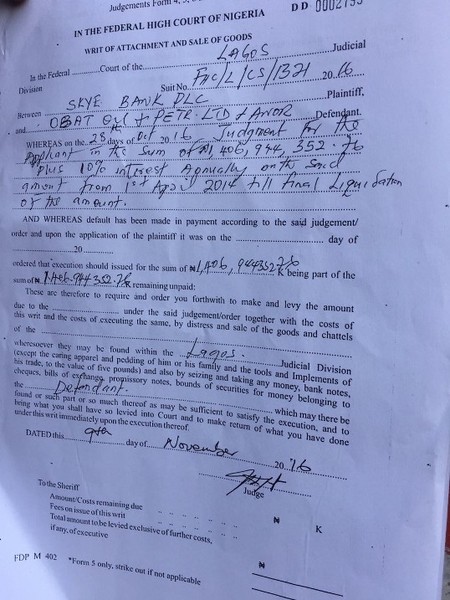 Judgements Form 4, 5,
D D 0002795
IN THE FEDERAL HIGH COURT OF NIGERIA
WRIT OF ATTACHMENT AND SALE OF GOODS
In the Federal Court of the LAGOS Judicial
Division Suit No. FHC/L/CS/1321 2016
Between SKYE BANK PLC Plaintiff,
and OBAT OIL & PETR. LTD & ANOR Defendant.
WHEREAS on the 28th day of Oct 2016 Judgment for the
Applicant in the Sum of ₦1,406,944,352.76
Plus 10% interest Annually on the Said
amount from 1st April 2014 till final Liquidation
of the amount.
AND WHEREAS default has been made in payment according to the said judgement/
order and upon the application of the plaintiff it was on the day of
20
ordered that execution should issued for the sum of ₦1,406,944352.76 K being part of the
sum of ₦ 1,406.944352.76 remaining unpaid:
These are therefore to require and order you forthwith to make and levy the amount
due to the under the said judgement/order together with the costs of
this writ and the costs of executing the same, by distress and sale of the goods and chattels
of the
wheresoever they may be found within the Lagos. Judicial Division
(except the earing apparel and pedding of him or his family and the tools and Implements of
his trade, to the value of five pounds) and also by seizing and taking any money, bank notes,
cheques, bills of exchange, promissory notes, bounds of securities for money belonging to
the Defendant. which may there be
found or such part or so much thereof as may be sufficient to satisfy the execution, and to
bring what you shall have so levied into Court and to make return of what you have done
under this writ immediately upon the execution thereof.
DATED this 9th day of November 2016
Judge
To the Sheriff
₦ K
Amount/Costs remaining due
Fees on issue of this writ
Total amount to be levied exclusive of further costs,
if any, of executive
₦
FDP M 402 *Form 5 only, strike out if not applicable